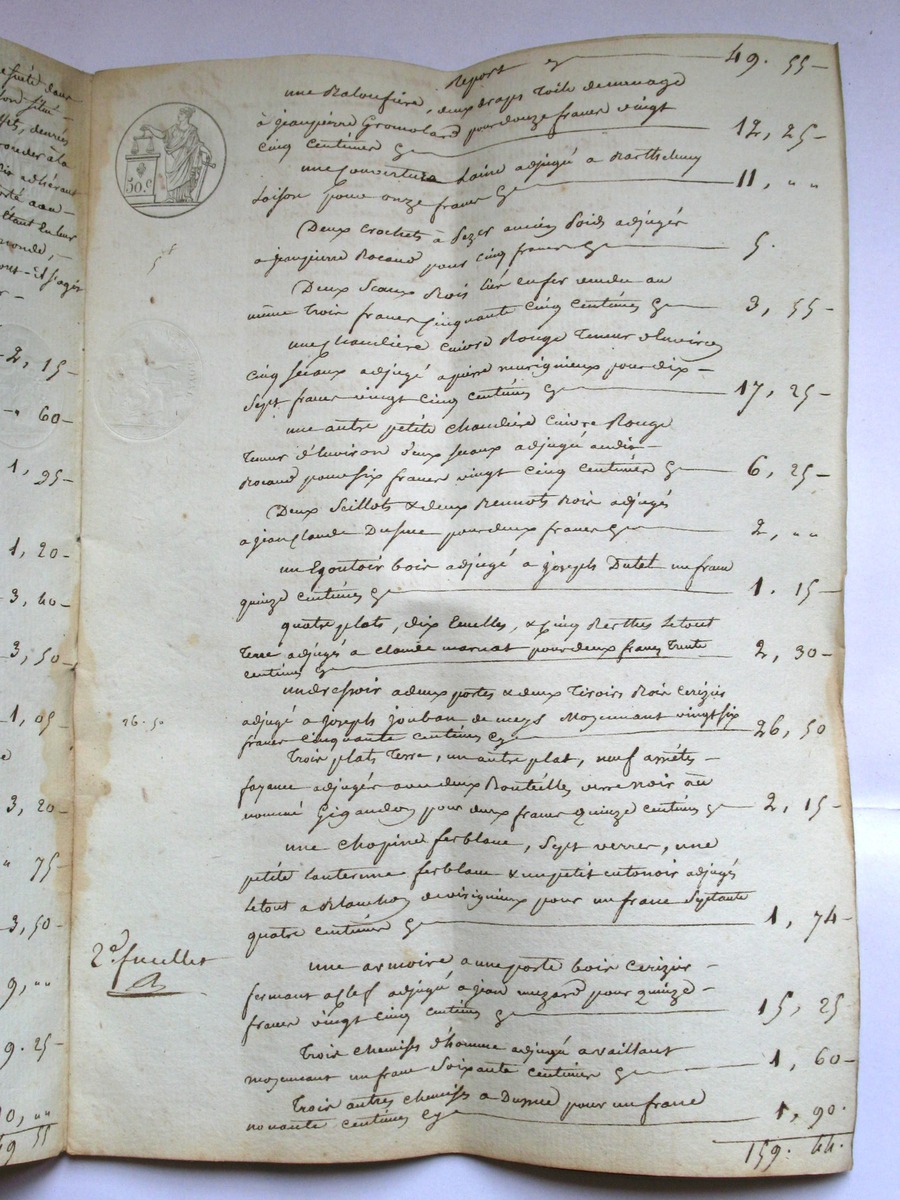 Report 49. 55
une  deux draps Toile de menage
à jeanpierre Gromolard pour douze francs vingt
cinq centimes 12, 25
une Couverture Laine adjugé a Barthelemy
Loison pour onze francs 11, " "
Deux Crochets à Pezer ancien Poids adjugés
a jeanpierre Rocand pour cinq francs 5.
Deux Seaux Bois lié en fer vendu au
même trois francs Cinquante Cinq Centimes 3, 55
une chaudière Cuivre Rouge Teneur d'Environ
Cinq seaux adjugé a pierre  pour dix
Sept francs vingt Cinq Centimes 17, 25
une autre petite chaudiere Cuivre Rouge
Teneur d'Environ deux seaux adjugé audit
Rocand pour six francs vingt cinq centimes 6, 25
Deux Seillots & deux  Bois adjugés
a jean Claude  pour deux francs 2, " "
un Egoutoir bois adjugé à joseph Dutel un franc
quinze centimes 1. 15
quatre plats, dix Ecuelles, & Cinq  Le tout
Terre adjugés a claude  pour deux francs Trente
centimes 2, 30
un dressoir a deux portes & deux Tiroirs Bois Cerizier
adjugé a joseph Jouban de meys Moyennant vingt six
francs cinquante centimes 26, 50
26. 50
Trois plats Terre, un autre plat, neuf assiétes
fayance adjugés avec deux Bouteilles verre noir au
nommé Gigandon pour deux francs Quinze Centimes 2, 15
une Chopine ferblanc, Sept verres, une
petite Lanterne ferblanc & un petit entonoir adjugés
Le tout a Blanchon  pour un franc Septante
quatre centimes 1, 74
2d. feuillet
une armoire a une porte bois Cerizier
fermant a Clef adjugé a jean  pour quinze
francs vingt cinq centimes 15, 25
Trois chemises d'homme adjugé a vaillant
moyennant un franc Soixante centimes 1, 60
Trois autres chemises a  pour un franc
nonante centimes 1, 90.
159. 44.
50. c
2, 15
" 60
1, 95
1, 20
3, 40
3, 50
1, 05
3, 20
" 75
3, 50
9, " "
9. 25
0, " "
49 55